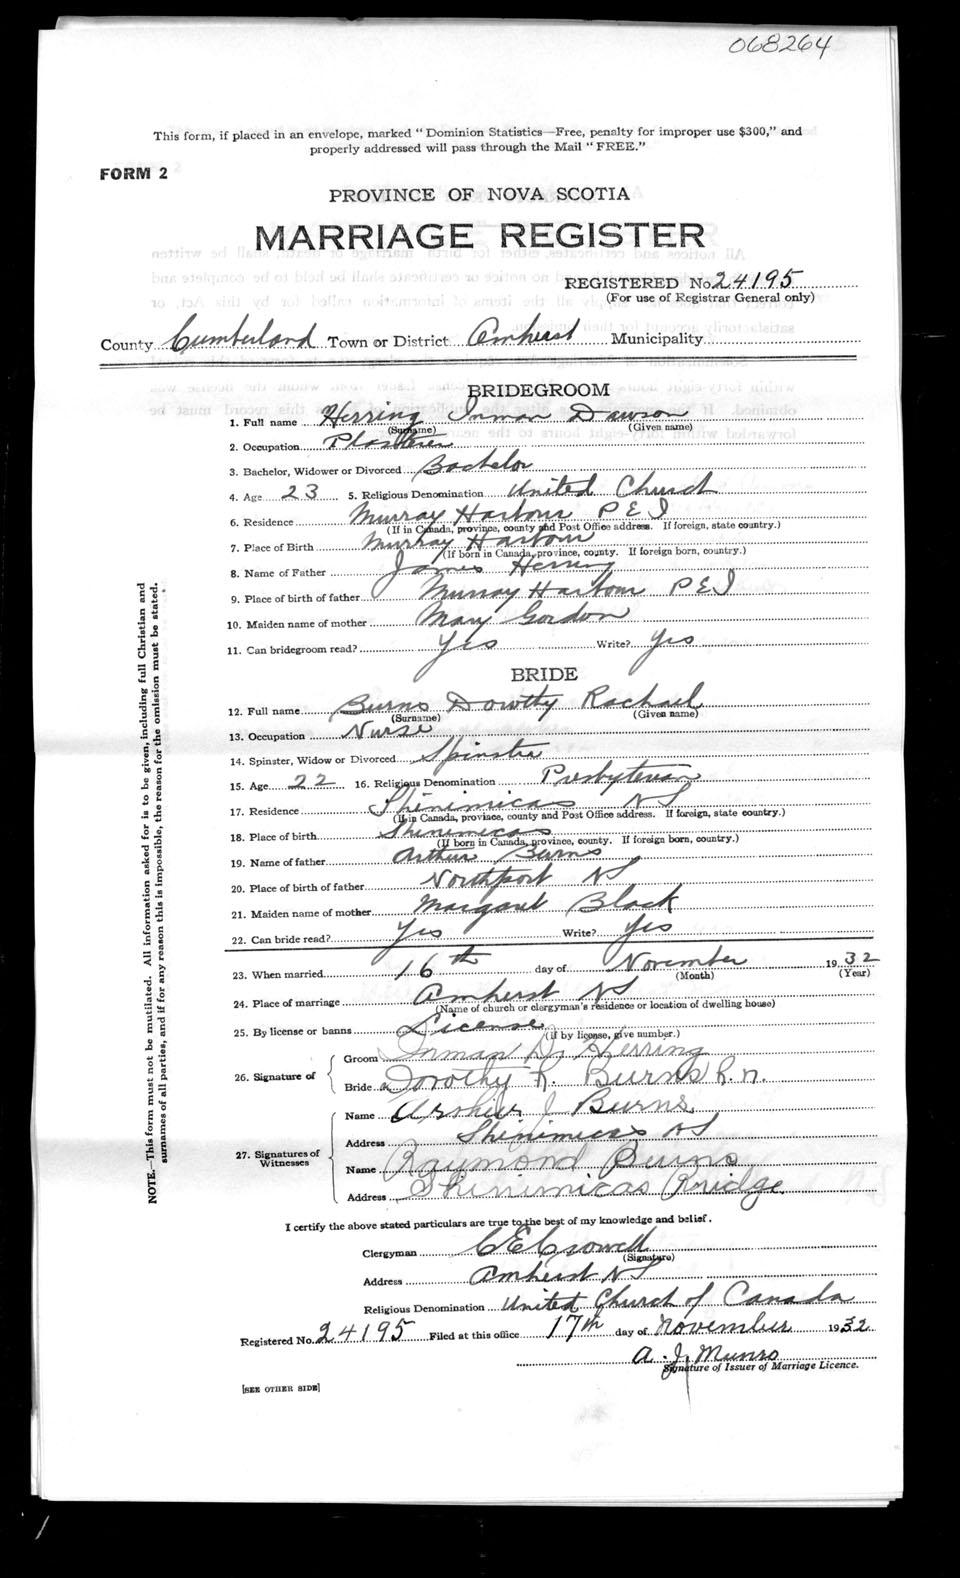 068264
This form, if placed in an envelope, marked "Dominion Statistics—Free, penalty for improper use $300," and
properly addressed will pass through the Mail "FREE."
FORM 2
PROVINCE OF NOVA SCOTIA
MARRIAGE REGISTER
REGISTERED No. 24195
(For use of Registrar General only)
County Cumberland Town or District Amherst Municipality
BRIDEGROOM
1. Full name Herring Inman Dawson
(Surname) (Given name)
2. Occupation Plasterer
3. Bachelor, Widower or Divorced Bachelor
4. Age 23 5. Religious Denomination United Church
6. Residence Murray Harbour P E I
(If in Canada, province, county and Post Office address. If foreign, state country.)
7. Place of Birth Murray Harbour
(If born in Canada, province, county. If foreign born, country.)
8. Name of Father James Herring
9. Place of birth of father Murray Harbour P E I
10. Maiden name of mother Mary Gordon
11. Can bridegroom read? Yes Write? Yes
BRIDE
12. Full name Burns Dorothy Rachael
(Surname) (Given name)
13. Occupation Nurse
14. Spinster, Widow or Divorced Spinster
15. Age 22 16. Religious Denomination Presbyterian
17. Residence Shinimicas N S
(If in Canada, province, county and Post Office address. If foreign, state country.)
18. Place of birth Shinimicas
(If born in Canada, province, county. If foreign born, country.)
19. Name of father Arthur Burns
20. Place of birth of father Northport N S
21. Maiden name of mother Margaret Black
22. Can bride read? Yes Write? Yes
23. When married 16th day of November 1932
(Month) (Year)
24. Place of marriage Amherst N S
(Name of church or clergyman's residence or location of dwelling house)
25. By license or banns License
(if by license, give number.)
26. Signature of
Groom Inman D. Herring
Bride Dorothy R. Burns R.n.
27. Signatures of Witnesses
Name Arthur J Burns
Address Shinimicas N S
Name Raymond Burns
Address Shinimicas Bridge
I certify the above stated particulars are true to the best of my knowledge and belief.
Clergyman C E Crowell
(Signature)
Address Amherst N S
Religious Denomination United Church of Canada
Registered No. 24195 Filed at this office 17th day of November 1932
A. J. Munro
Signature of Issuer of Marriage Licence.
[SEE OTHER SIDE]
NOTE.—This form must not be mutilated. All information asked for is to be given, including full Christian and
surnames of all parties, and if for any reason this is impossible, the reason for the omission must be stated.